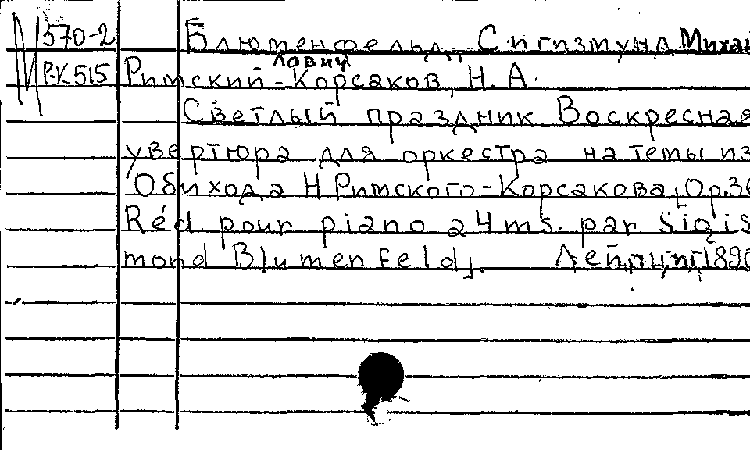 570-2 Блюменфельд, Сигизмунд Михай
лович
ВК515 Римский-Корсаков, Н. А.
Светлый праздник Воскресная
увертюра для оркестра на темы из
Обихода Н Римского-Корсакова, Op.36
Réd pour piano a 4 ms. par Sigis
mond Blumenfeld. Лейпциг 1890